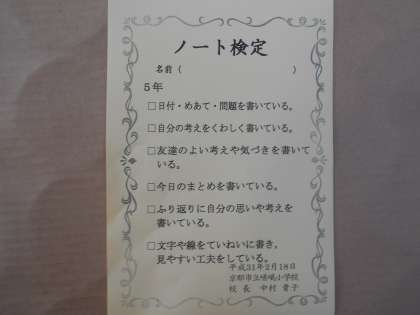 ノート検定
名前（　　　　　　　　　　）
5年
□日付・めあて・問題を書いている。
□自分の考えをくわしく書いている。
□友達のよい考えや気づきを書いて
いる。
□今日のまとめを書いている。
□ふり返りに自分の思いや考えを
書いている。
□文字や線をていねいに書き，
見やすい工夫をしている。
平成31年2月18日
京都市立嵯峨小学校
校長　中村　貴子